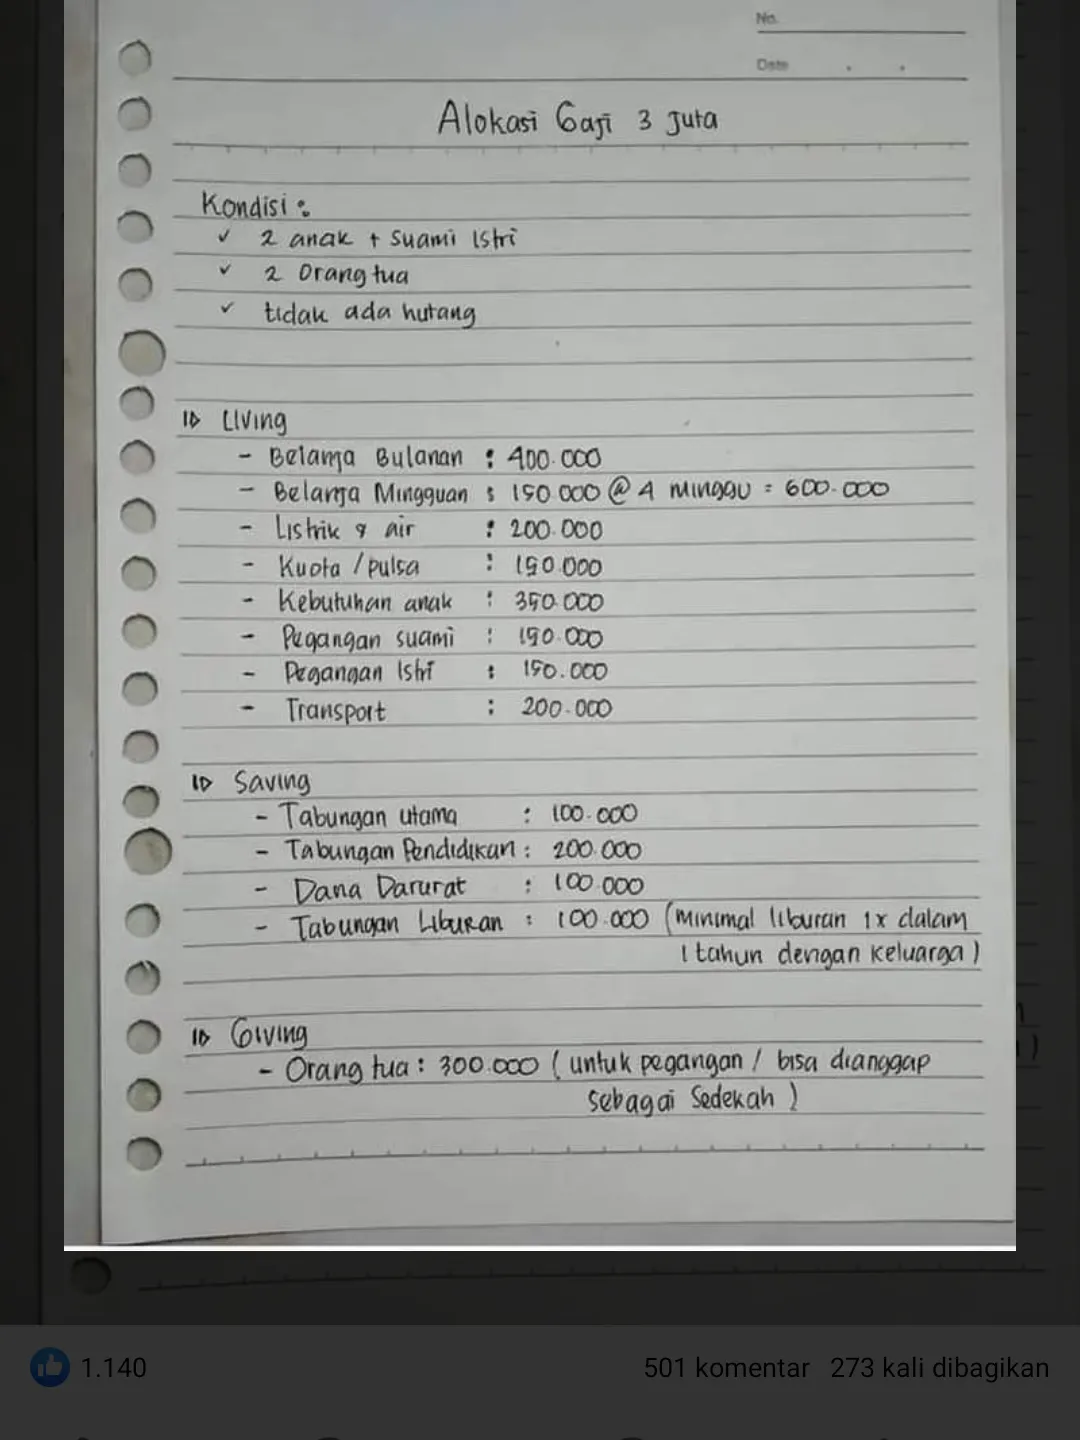 No.
Date
Alokasi Gaji 3 Juta
Kondisi :
✓ 2 anak + Suami Istri
✓ 2 Orang tua
✓ tidak ada hutang
Living
- Belanja Bulanan : 400.000
- Belanja Mingguan : 150.000 @ 4 minggu = 600.000
- Listrik & air : 200.000
- Kuota / pulsa : 150.000
- Kebutuhan anak : 350.000
- Pegangan suami : 150.000
- Pegangan Istri : 150.000
- Transport : 200.000
Saving
- Tabungan utama : 100.000
- Tabungan Pendidikan : 200.000
- Dana Darurat : 100.000
- Tabungan Liburan : 100.000 (minimal liburan 1x dalam
1 tahun dengan keluarga)
Giving
- Orang tua : 300.000 ( untuk pegangan / bisa dianggap
sebagai Sedekah )
1.140
501 komentar 273 kali dibagikan